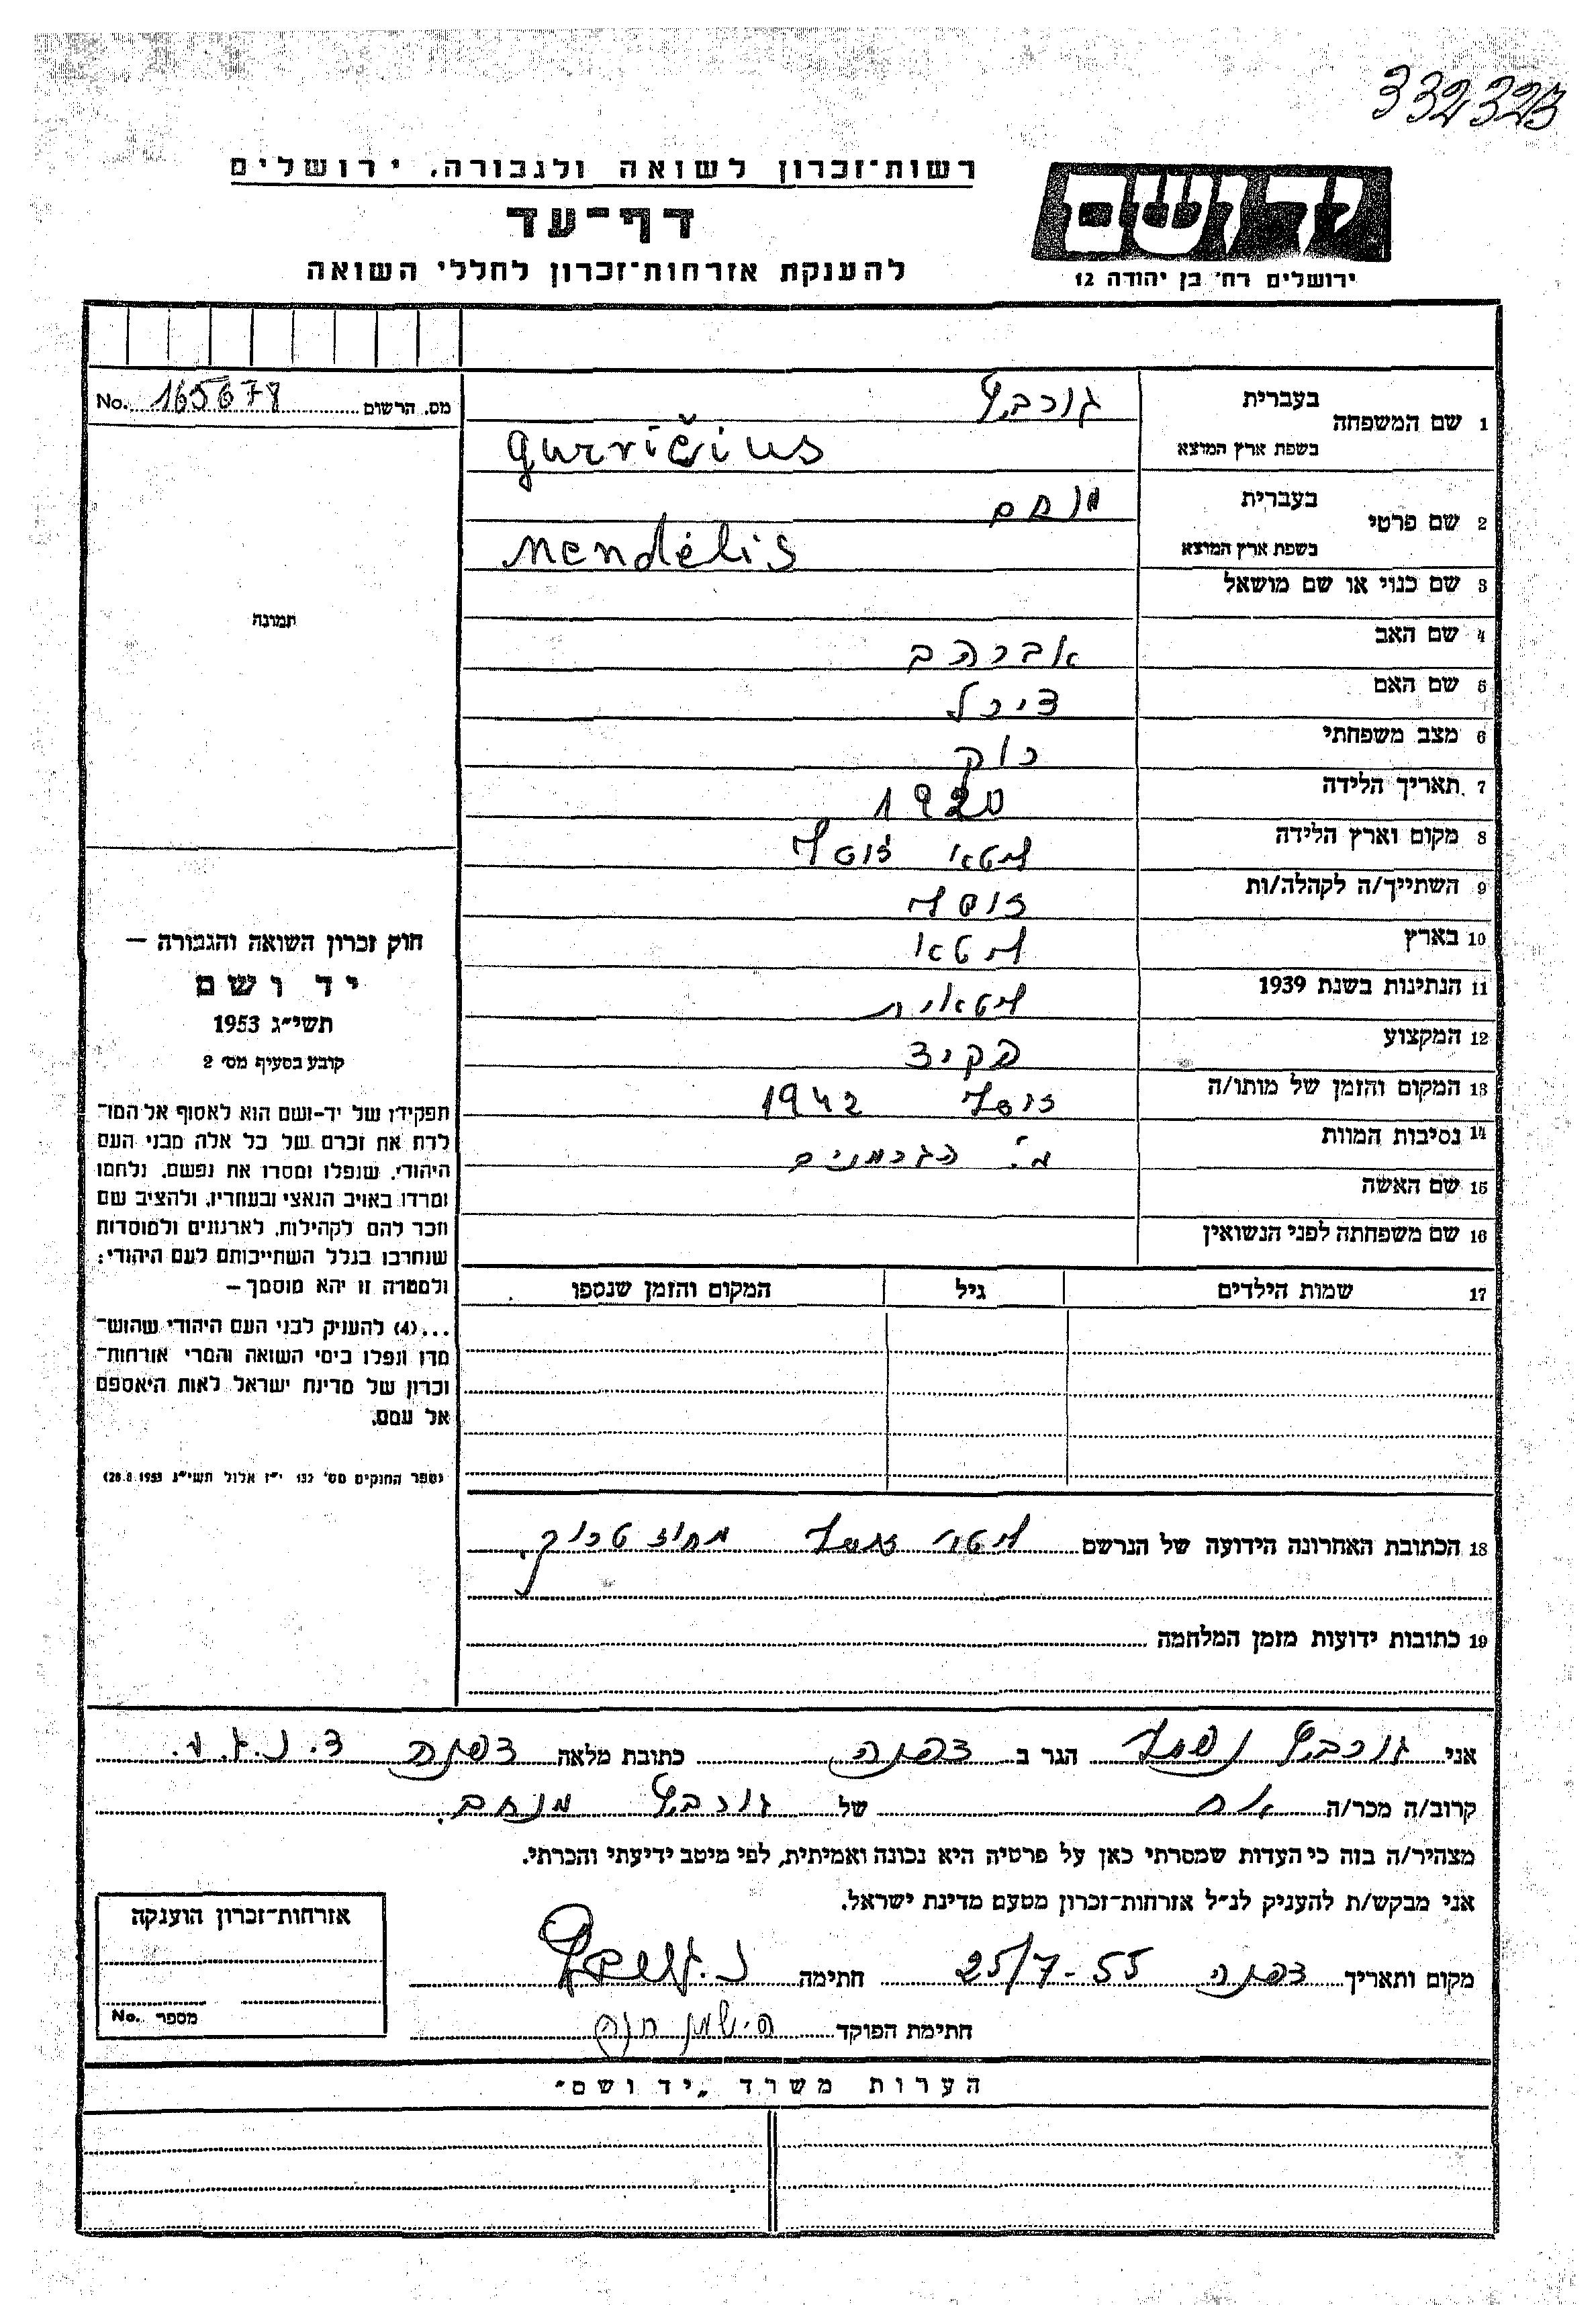 332323
רשות־זכרון לשואה ולגבורה, ירושלים
יד ושם
דף־עד
להענקת אזרחות־זכרון לחללי השואה
ירושלים רח' בן יהודה 12
מס. הרשום 165678 No.
1 שם המשפחה בעברית גורביץ
בשפת ארץ המוצא gurvičius
2 שם פרטי בעברית מנחם
בשפת ארץ המוצא Mendėlis
3 שם כנוי או שם מושאל
תמונה
4 שם האב אברהם
5 שם האם
6 מצב משפחתי רווק
7 תאריך הלידה 1920
8 מקום וארץ הלידה ליטא
9 השתייך/ה לקהלה/ות
10 בארץ ליטא
11 הנתינות בשנת 1939 ליטאית
12 המקצוע פקיד
13 המקום והזמן של מותו/ה 1942
14 נסיבות המוות ע"י הגרמנים
15 שם האשה
16 שם משפחתה לפני הנשואין
17 שמות הילדים גיל המקום והזמן שנספו
חוק זכרון השואה והגבורה –
יד ושם
תשי"ג 1953
קובע בסעיף מס' 2
תפקידו של יד-ושם הוא לאסוף אל המו־
לדת את זכרם של כל אלה מבני העם
היהודי, שנפלו ומסרו את נפשם, נלחמו
ומרדו באויב הנאצי ובעוזריו, ולהציב שם
וזכר להם לקהילות, לארגונים ולמוסדות
שנחרבו בגלל השתייכותם לעם היהודי;
ולמטרה זו יהא מוסמך –
...(4) להעניק לבני העם היהודי שהוש־
מדו ונפלו בימי השואה והמרי אזרחות־
זכרון של מדינת ישראל לאות היאספם
אל עמם.
(ספר החוקים מס' 132 י"ז אלול תשי"ג 28.8.1953)
18 הכתובת האחרונה הידועה של הנרשם מחוז
19 כתובות ידועות מזמן המלחמה
אני גורביץ הגר ב דפנה כתובת מלאה דפנה ד.נ.ג.ע.
קרוב/ה מכר/ה אח של גורביץ מנחם.
מצהיר/ה בזה כי העדות שמסרתי כאן על פרטיה היא נכונה ואמיתית, לפי מיטב ידיעתי והכרתי.
אני מבקש/ת להעניק לנ"ל אזרחות־זכרון מטעם מדינת ישראל.
מקום ותאריך דפנה 25/7-55 חתימה
חתימת הפוקד
אזרחות־זכרון הוענקה
מספר No.
הערות משרד „יד ושם"